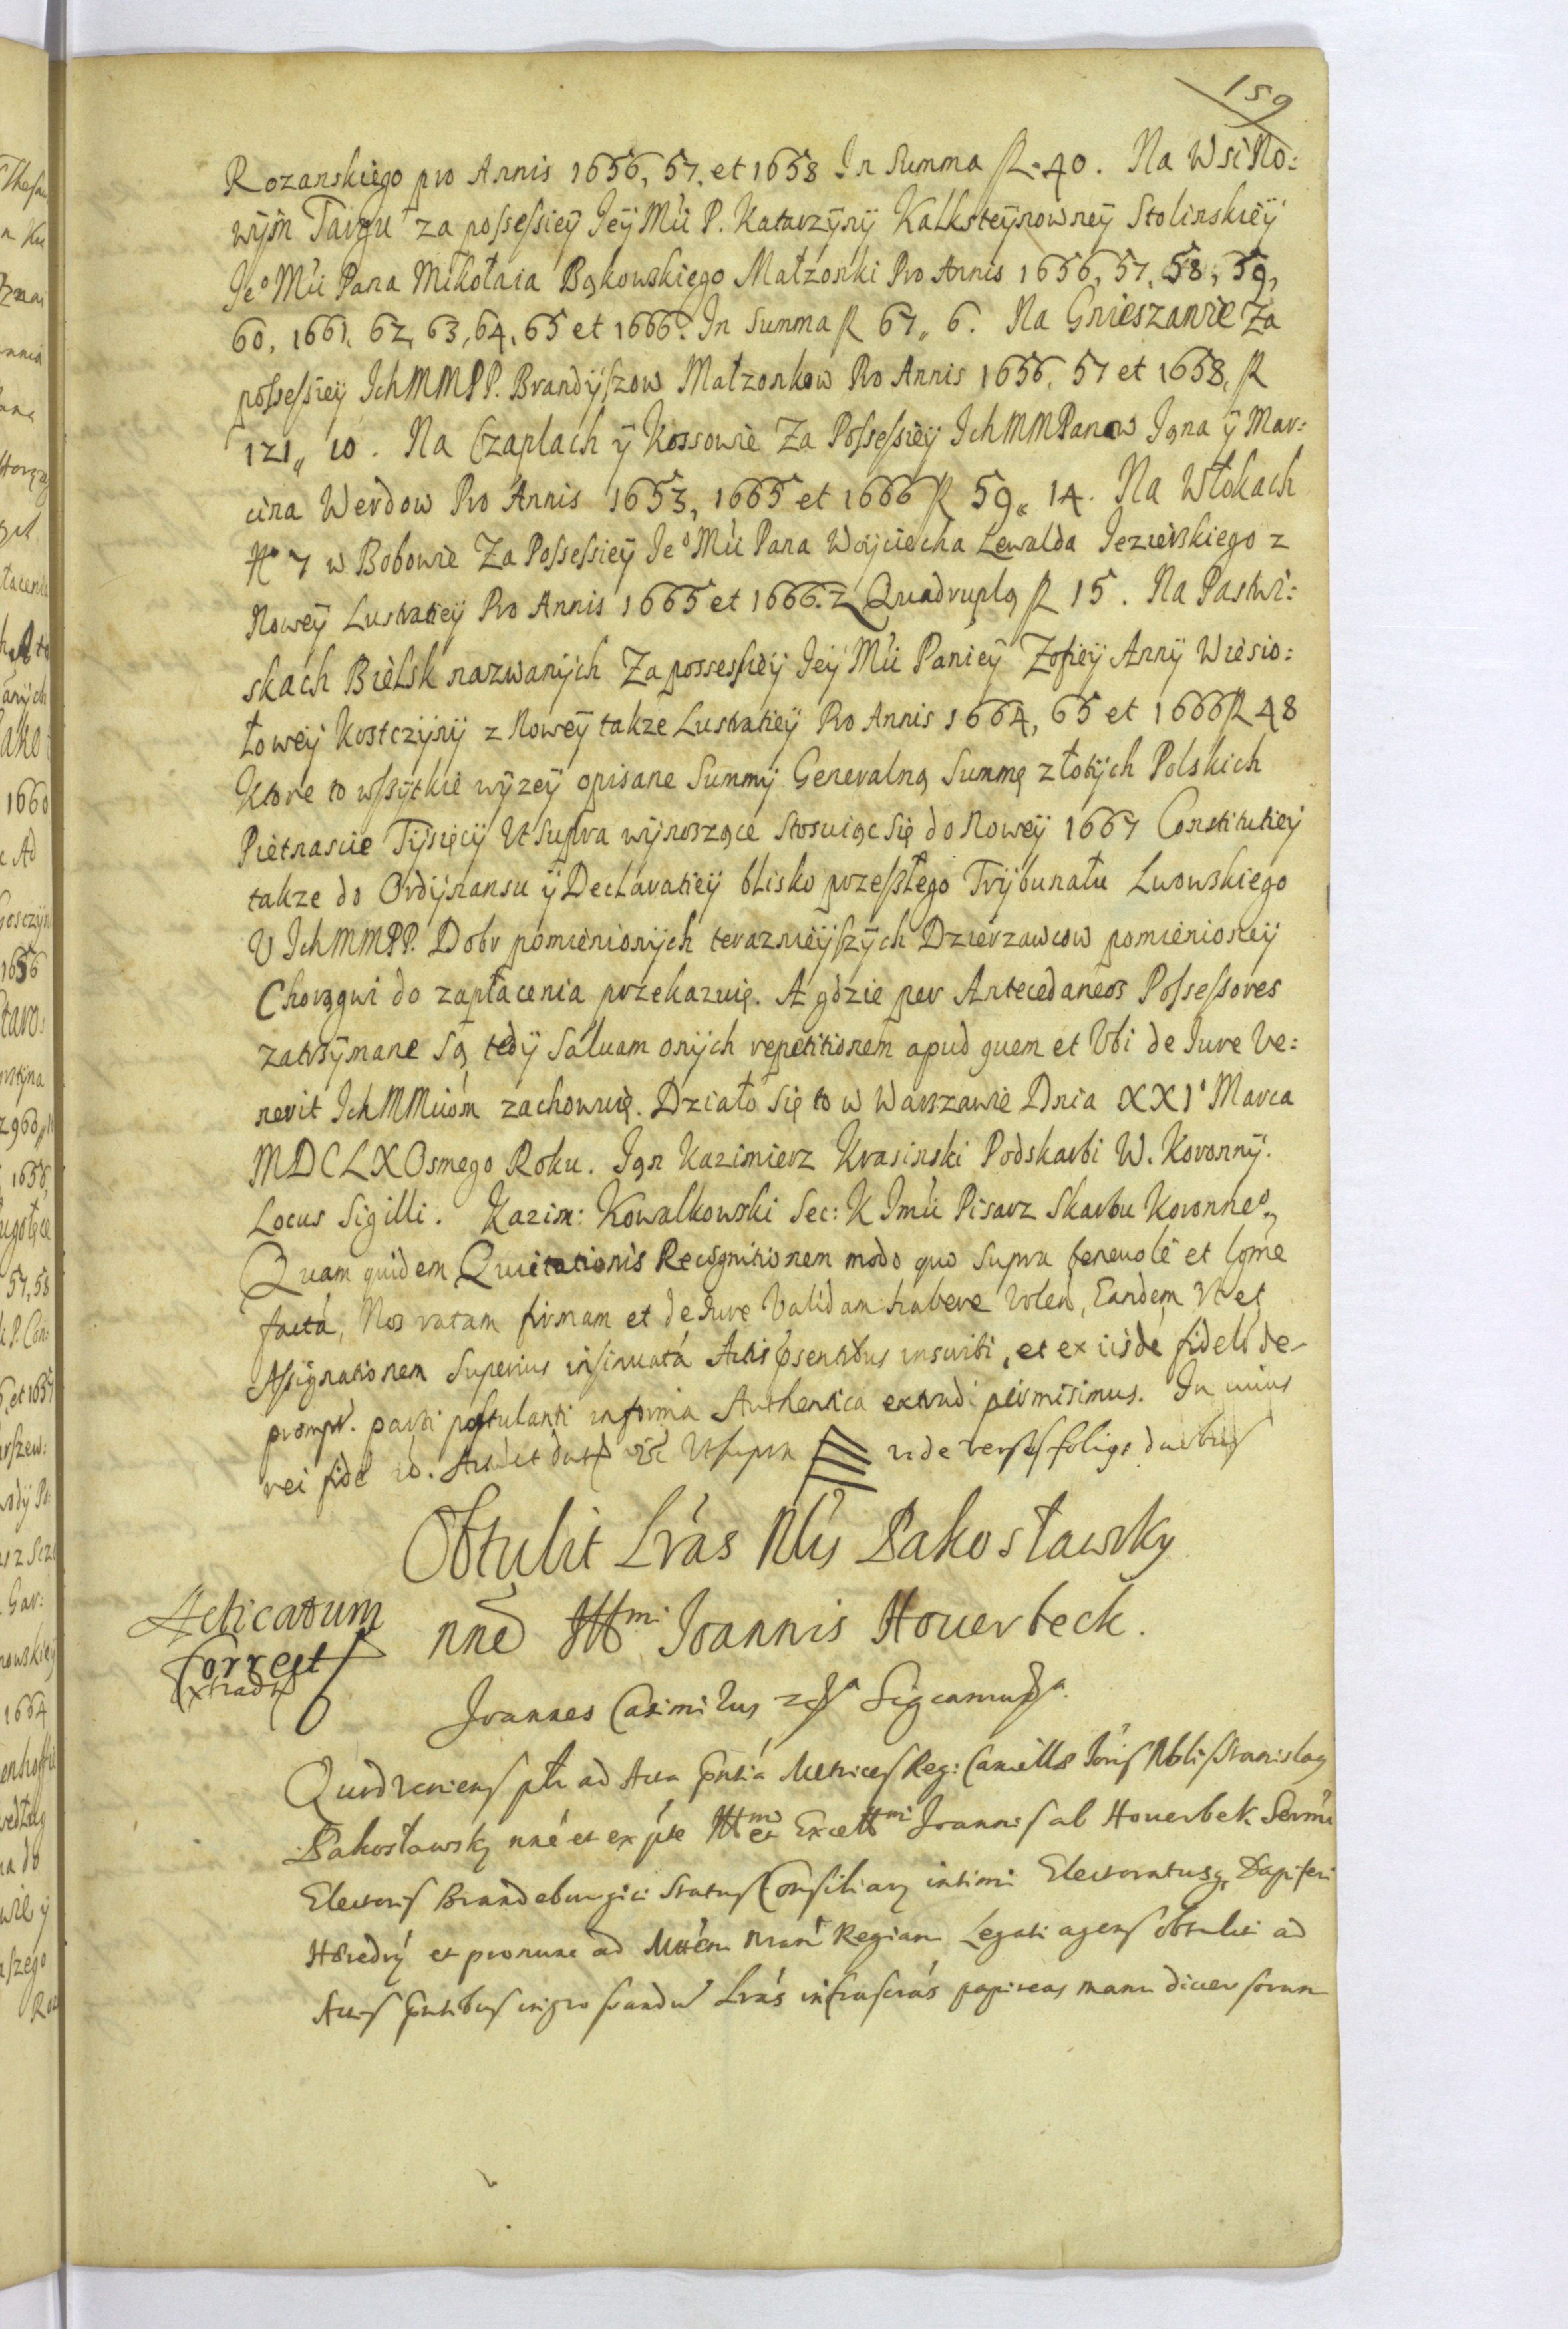 159
Rozanskiego pro Annis 1656, 57, et 1658 In Summa fl. 40. Na Wsi No:
wÿm Targu za possessieÿ Jeÿ Mći P. Katarzÿnÿ Kalksteÿnowneÿ Stolinskieÿ
Jeº Mći Pana Mikołaia Bąkowskiego Małzonki Pro Annis 1656, 57, 58, 59,
60, 1661, 62, 63, 64, 65 et 1666. In Summa fl 67,, 6. Na Gnieszawie Za
possessieÿ Ich MMPP. Brandÿszow Małzonkow Pro Annis 1656, 57 et 1658, fl
121,, 10. Na Czaplach ÿ Kossowie Za Possessieÿ Ich MMPanow Jana ÿ Mar:
cina Werdow Pro Annis 1653, 1665 et 1666 fl 59,, 14. Na Włokach
Nº 7 w Bobowie Za Possessieÿ Jeº Mći Pana Woÿciecha Lewalda Jezierskiego z
Noweÿ Lustratieÿ Pro Annis 1665 et 1666. z Quadruplą fl 15. Na Pastwi:
skach Bielsk nazwanÿch Za possessieÿ Jeÿ Mći Panieÿ Zofieÿ Annÿ Wiesio:
łoweÿ Kostczÿnÿ z Noweÿ takze Lustratieÿ Pro Annis 1664, 65 et 1666 fl 48
Ktore to wszÿtkie wÿzeÿ opisane Summÿ Generalną Summę złotÿch Polskich
Pietnascie Tÿsięcÿ Ut Supra wÿnoszące stosuiąc się do Noweÿ 1667 Constitutieÿ
takze do Ordÿnansu ÿ Declaratieÿ blisko przeszłego Trÿbunału Lwowskiego
U Ich MMPP. Dobr pomienionÿch terazniejszÿch Dzierzawcow pomienioneÿ
Chorągwi do zapłacenia przekazuię. A gdzie per Antecedaneos Possessores
zatrzÿmane są, tedÿ saluam onÿch repetitionem apud quem et Ubi de Iure Ve:
nerit Ich MMciom zachowuię. Działo się to w Warszawie Dnia XXI Marca
MDCLX Osmego Roku. Jan Kazimierz Krasinski Podskarbi W. Koronnÿ.
Locus Sigilli. Kazim: Kowalkowski Sec: K Jmći Pisarz Skarbu Koronneº.
Quam quidem Quietationis Recognitionem modo quo supra beneuole et lgme
factá, Nos ratam firmam et de Iure Validam habere volen, Eandem Ut et
Assignationem Superius insinuatá Actis pńsentibus inscribi, et ex iisdé fidelr de-
prompt. parti postulanti in forma Authentica extradi permisimus. In cuius
rei fidé Act et dat Ut supra vide versus folijs duobus
Obtulit Lrás Nlis Pakosławsky
nné Illmi Joannis Houerbeck.
Acticatum
Correct
Extrad
Joannes Casimirus
Quod veniens ptr ad Acta pńtia Metrices Reg: Cancellæ Nbli Stanislaus
Pakosławsky nné et ex pte Illmi et Excellmi Joannis ab Houerbek Sermi
Electoris Brandeburgici Status Consiliarÿ intimi Electoratusq Dapiferi
Hæredrÿ et pro nunc ad Mttem nram Regiam Legati agens obtulit ad
Actis pńtibus ingrossandu Lrás infrascrás papireas manu diuersorum